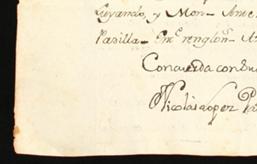 Luyando, y Mon- Ante
Padilla- Em.º renglon-
Concuerda con su
Nicolas Lopez